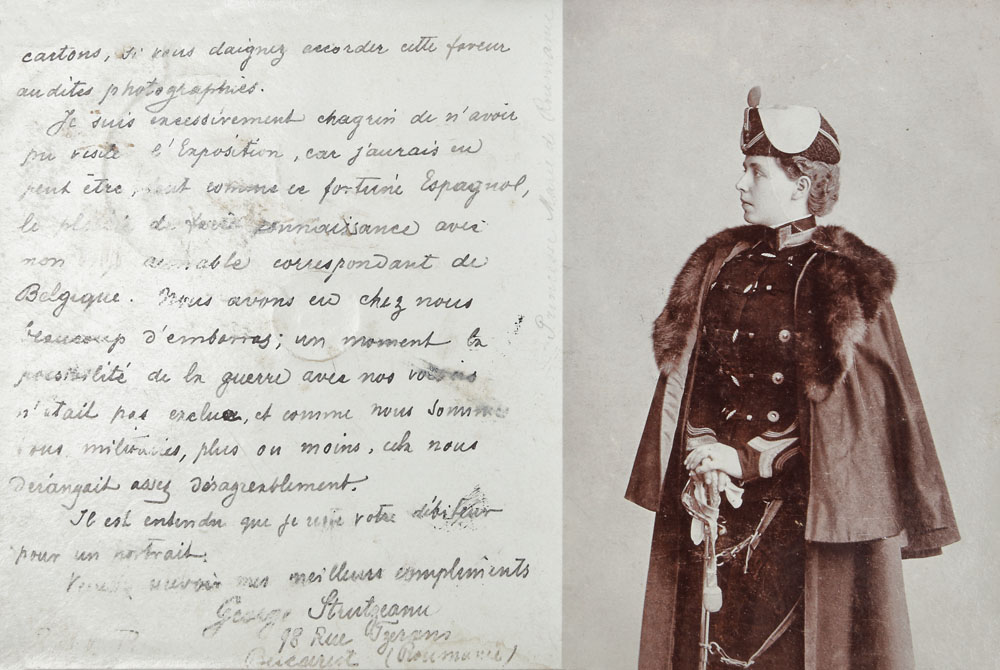 cartons, si vous daignez accorder cette faveur
audites photographies.
Je suis excessivement chagrin de n'avoir
pu visité l'Exposition, car j'aurais eu
peut être, tout comme ce fortuné Espagnol,
le de connaissance avec
non aimable correspondant de
Belgique. Nous avons eu chez nous
beaucoup d'embarras; un moment la
possibilité de la guerre avec nos voisins
n'était pas exclue, et comme nous sommes
tous militaires, plus ou moins, cela nous
dérangait assez désagreablement.
Il est entendu que je reste votre débiteur
pour un portrait.
recevoir mes meilleurs compliments
George
98 Rue
Bucarest (Roumanie)
Princesse Marie de Roumanie